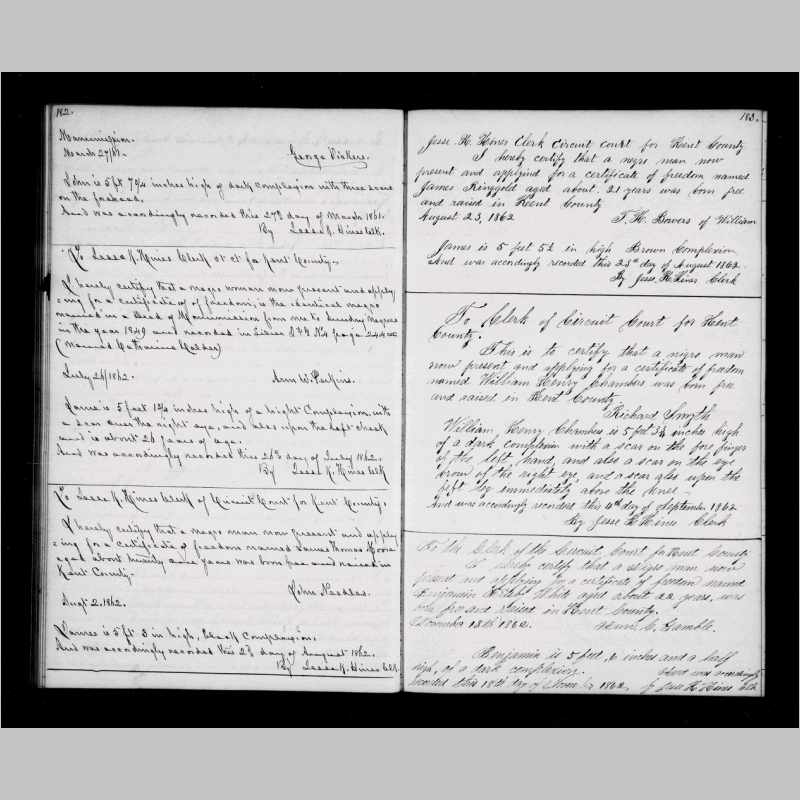 182.
Manumission.
March 27/61.
George Vickers.
John is 5 ft 7 3/4 inches high of dark complexion with three scars
on the forehead.
And was accordingly recorded this 27th day of March 1861.
By Jesse K. Hines Clk.
To Jesse K. Hines Clerk of Ct for Kent County.
I hereby certify that a negro woman now present and apply
ing for a certificate of freedom, is the identical negro
named in a Deed of Manumission from me to Sundry Negroes
in the year 1849 and recorded in Liber page 244
(named Catharine )
July 26/1862.
Ann W. Perkins.
is 5 feet inches high of a bright Complexion, with
a scar over the right eye, and also upon the left cheek
and is about 26 years of age.
And was accordingly recorded this 26th day of July 1862.
By Jesse K. Hines Clk
To Jesse K. Hines Clerk of Circuit Court for Kent County.
I hereby certify that a negro man now present and apply
ing for a certificate of freedom named James Thomas
aged about twenty one years was born free and raised in
Kent County.
John Needles.
Augt 2. 1862.
James is 5 ft 3 in high, Black Complexion.
And was accordingly recorded this 2d day of August 1862.
By Jesse K. Hines Clk.
183.
Jesse K. Hines Clerk Circuit court for Kent County
I hereby certify that a negro man now
present and applying for a certificate of freedom named
James Ringgold aged about 21 years was born free
and raised in Kent County
August 23, 1862
T. H. Bowers of William
James is 5 feet 5 1/2 in high Brown Complexion
And was accordingly recorded this 23d day of August 1862
By Jesse K Hines Clerk
To Clerk of Circuit Court for Kent
County.
This is to certify that a negro man
now present and applying for a certificate of freedom
named William Henry Chambers was born free
and raised in Kent County
Richard Smyth
William Henry Chambers is 5 feet inches high
of a dark complexion with a scar on the fore finger
of the left hand, and also a scar on the eye
brow of the right eye, and a scar also upon the
left thy immediately above the knee
And was accordingly recorded this 4th day of September 1862
By Jesse K Hines Clerk
To the Clerk of the Circuit Court for Kent County
I hereby certify that a negro man now
present and applying for a certificate of freedom named
Benjamin White aged about 22 years, was
born free and raised in Kent County.
November 18th 1862.
Gamble.
Benjamin is 5 feet, 6 inches and a half
high, of a dark complexion. And was accordingly
recorded this 18th day of November 1862, by Jesse K Hines Clk